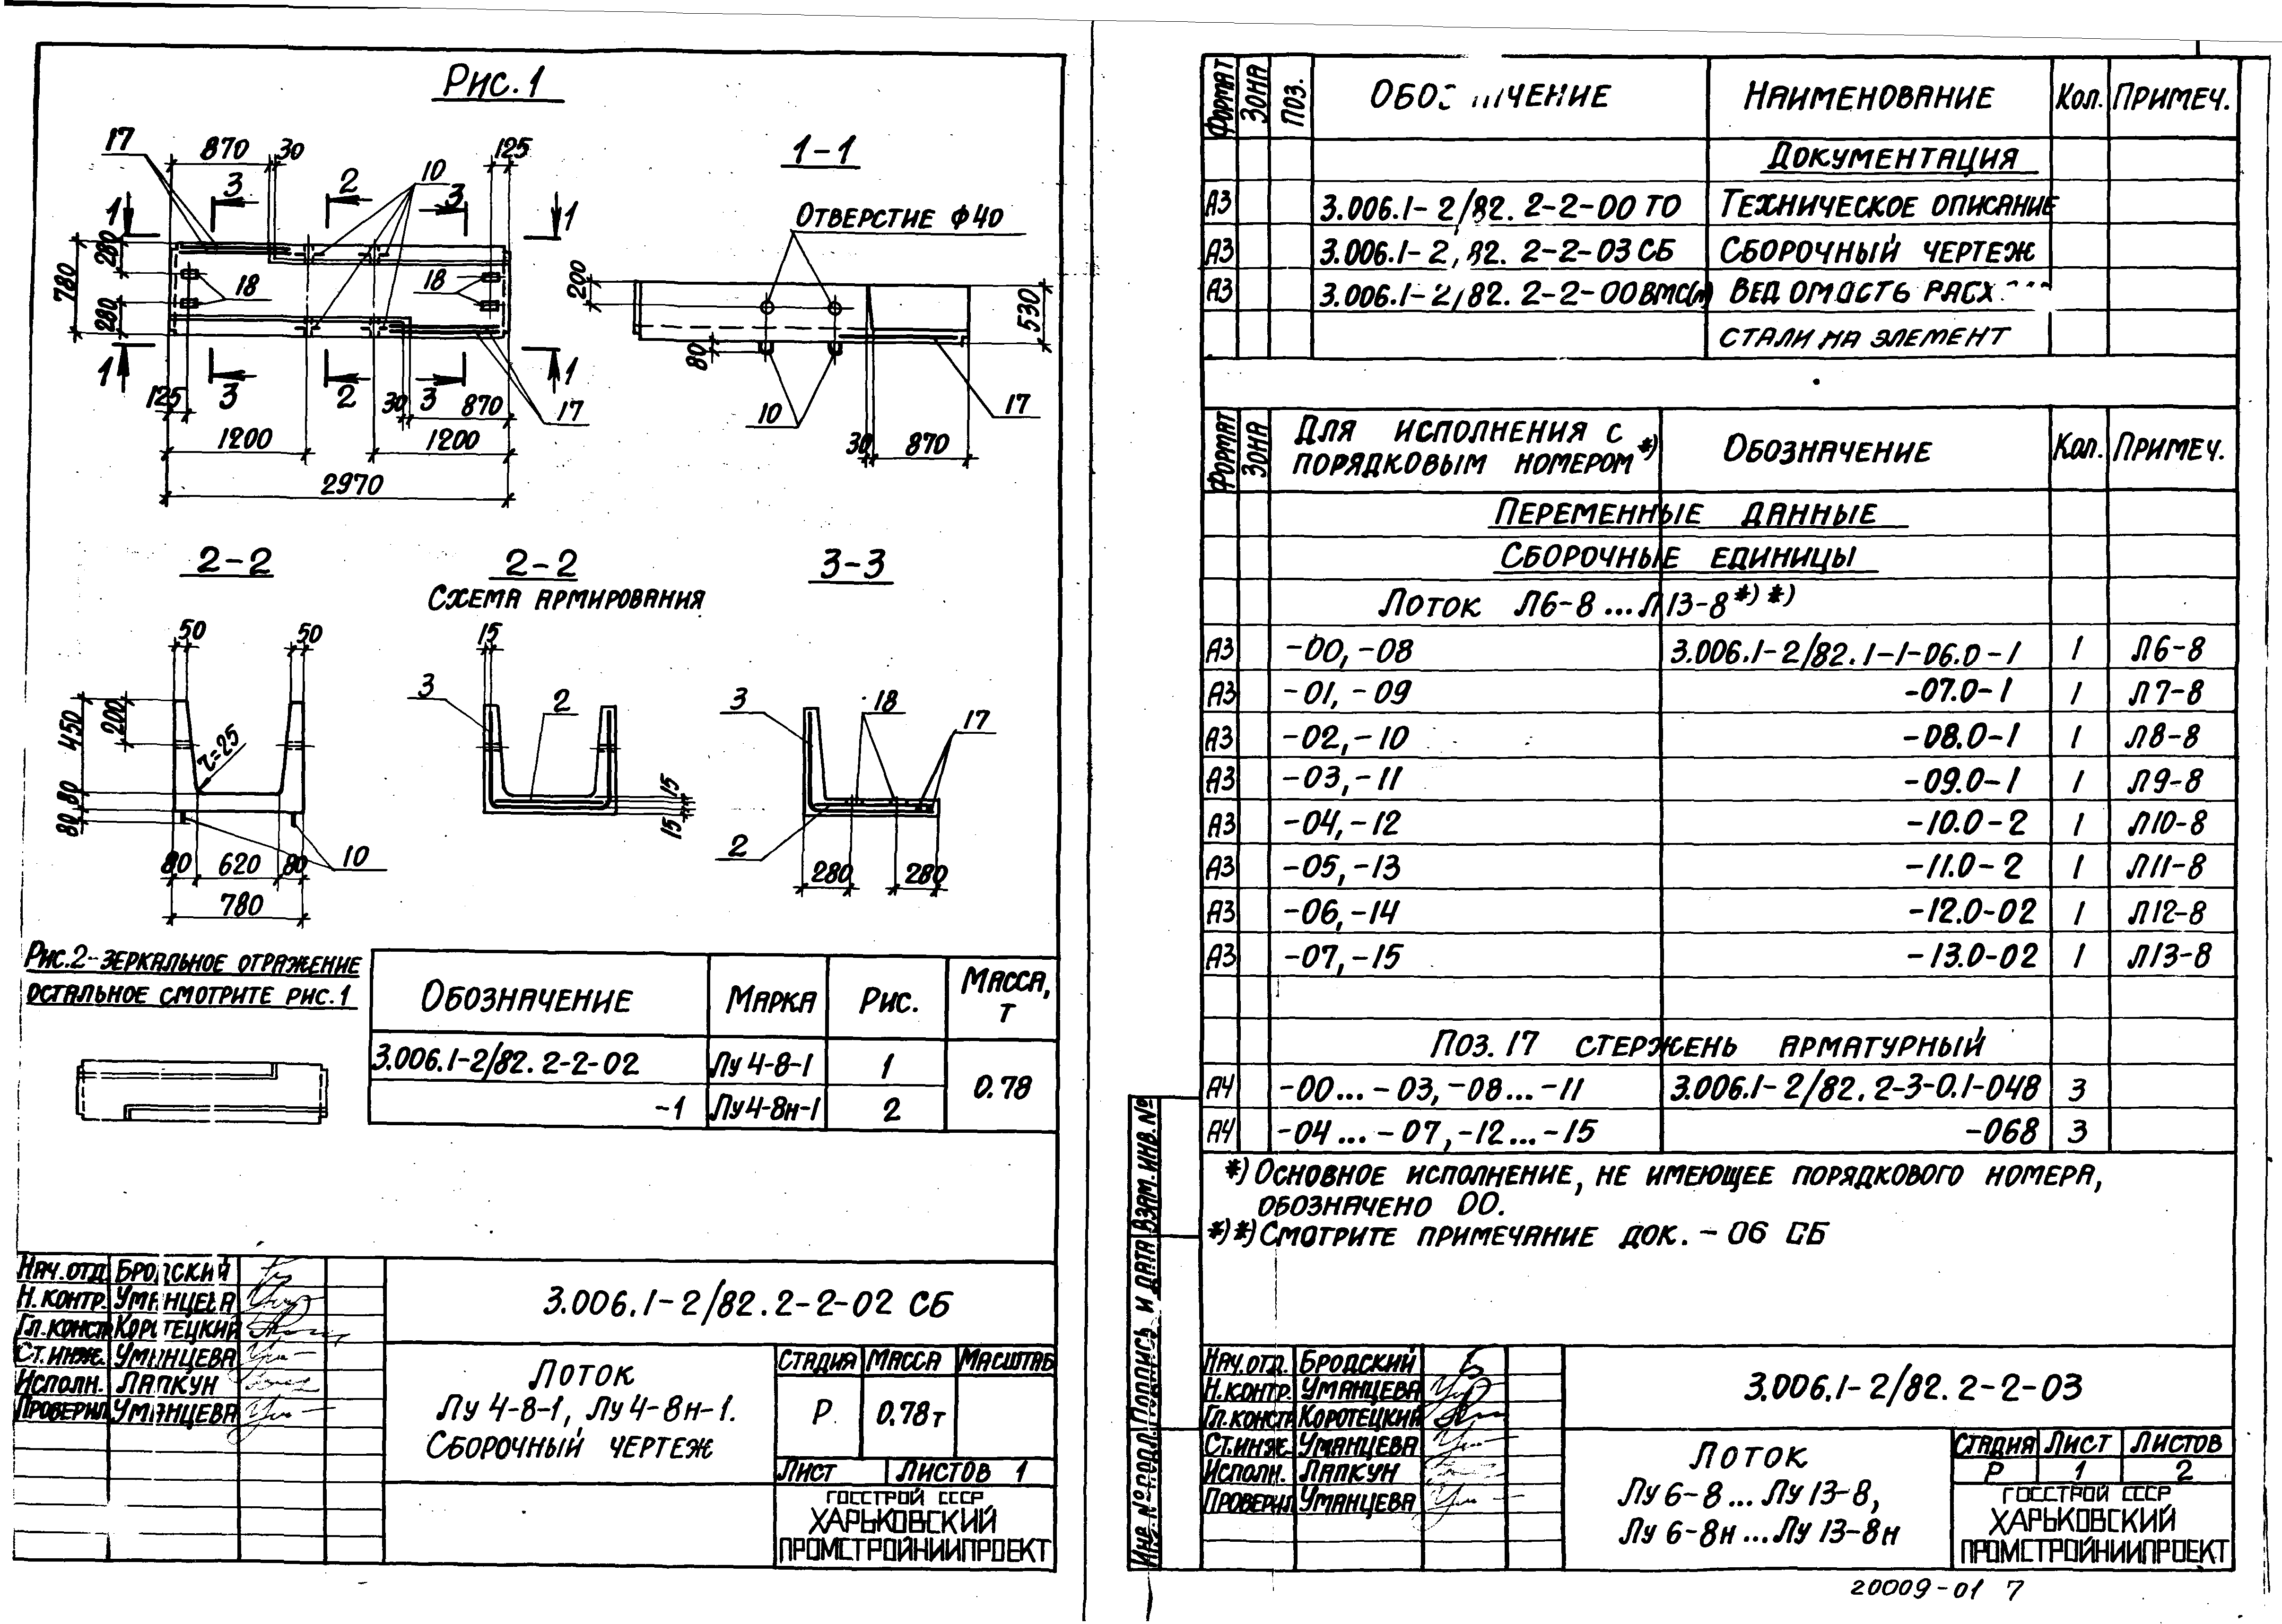 Рис. 1
17
870
30
125
3
2
10
3
1
1
280
780
280
18
18
1
3
2
3
1
125
30
870
17
1200
1200
2970
1-1
Отверстие ф40
200
530
80
10
17
30
870
2-2
50
50
450
200
r=25
80
80
10
80
620
80
780
2-2
Схема армирования
15
3
2
15
15
3-3
3
18
17
2
280
280
Рис.2-зеркальное отражение
остальное смотрите рис.1
Обозначение Марка Рис. Масса, т
3.006.1-2/82.2-2-02 Лу 4-8-1 1 0.78
-1 Лу4-8н-1 2
Нач.отд. Бродский
Н.контр. Уманцева
Гл.констр Коротецкий
Ст.инж. Уманцева
Исполн. Лапкун
Проверил Уманцева
3.006.1-2/82.2-2-02 СБ
Лоток
Лу 4-8-1, Лу 4-8н-1.
Сборочный чертеж
Стадия Масса Масштаб
Р 0.78т
Лист Листов 1
Госстрой СССР
Харьковский
Промстройниипроект
Формат Зона Поз. Наименование Кол. Примеч.
Документация
А3 3.006.1-2/82.2-2-00 ТО Техническое описание
А3 3.006.1-2/82.2-2-03 СБ Сборочный чертеж
А3 3.006.1-2/82.2-2-00ВМС(п) Ведомость
стали на элемент
Формат Зона Для исполнения с порядковым номером*) Обозначение Кол. Примеч.
Переменные данные
Сборочные единицы
Лоток Л6-8...Л13-8*)*)
А3 -00,-08 3.006.1-2/82.1-1-06.0-1 1 Л6-8
А3 -01,-09 -07.0-1 1 Л7-8
А3 -02,-10 -08.0-1 1 Л8-8
А3 -03,-11 -09.0-1 1 Л9-8
А3 -04,-12 -10.0-2 1 Л10-8
А3 -05,-13 -11.0-2 1 Л11-8
А3 -06,-14 -12.0-02 1 Л12-8
А3 -07,-15 -13.0-02 1 Л13-8
Поз. 17 стержень арматурный
А4 -00...-03,-08...-11 3.006.1-2/82.2-3-0.1-048 3
А4 -04...-07,-12...-15 -068 3
*) Основное исполнение, не имеющее порядкового номера,
обозначено 00.
*)*) Смотрите примечание док. -06 СБ
Инв.№подл. Подпись и дата Взам.инв.№
Нач.отд. Бродский
Н.контр. Уманцева
Гл.констр Коротецкий
Ст.инж. Уманцева
Исполн. Лапкун
Проверил Уманцева
3.006.1-2/82.2-2-03
Лоток
Лу 6-8...Лу 13-8,
Лу 6-8н...Лу 13-8н
Стадия Лист Листов
Р 1 2
Госстрой СССР
Харьковский
Промстройниипроект
20009-01 7